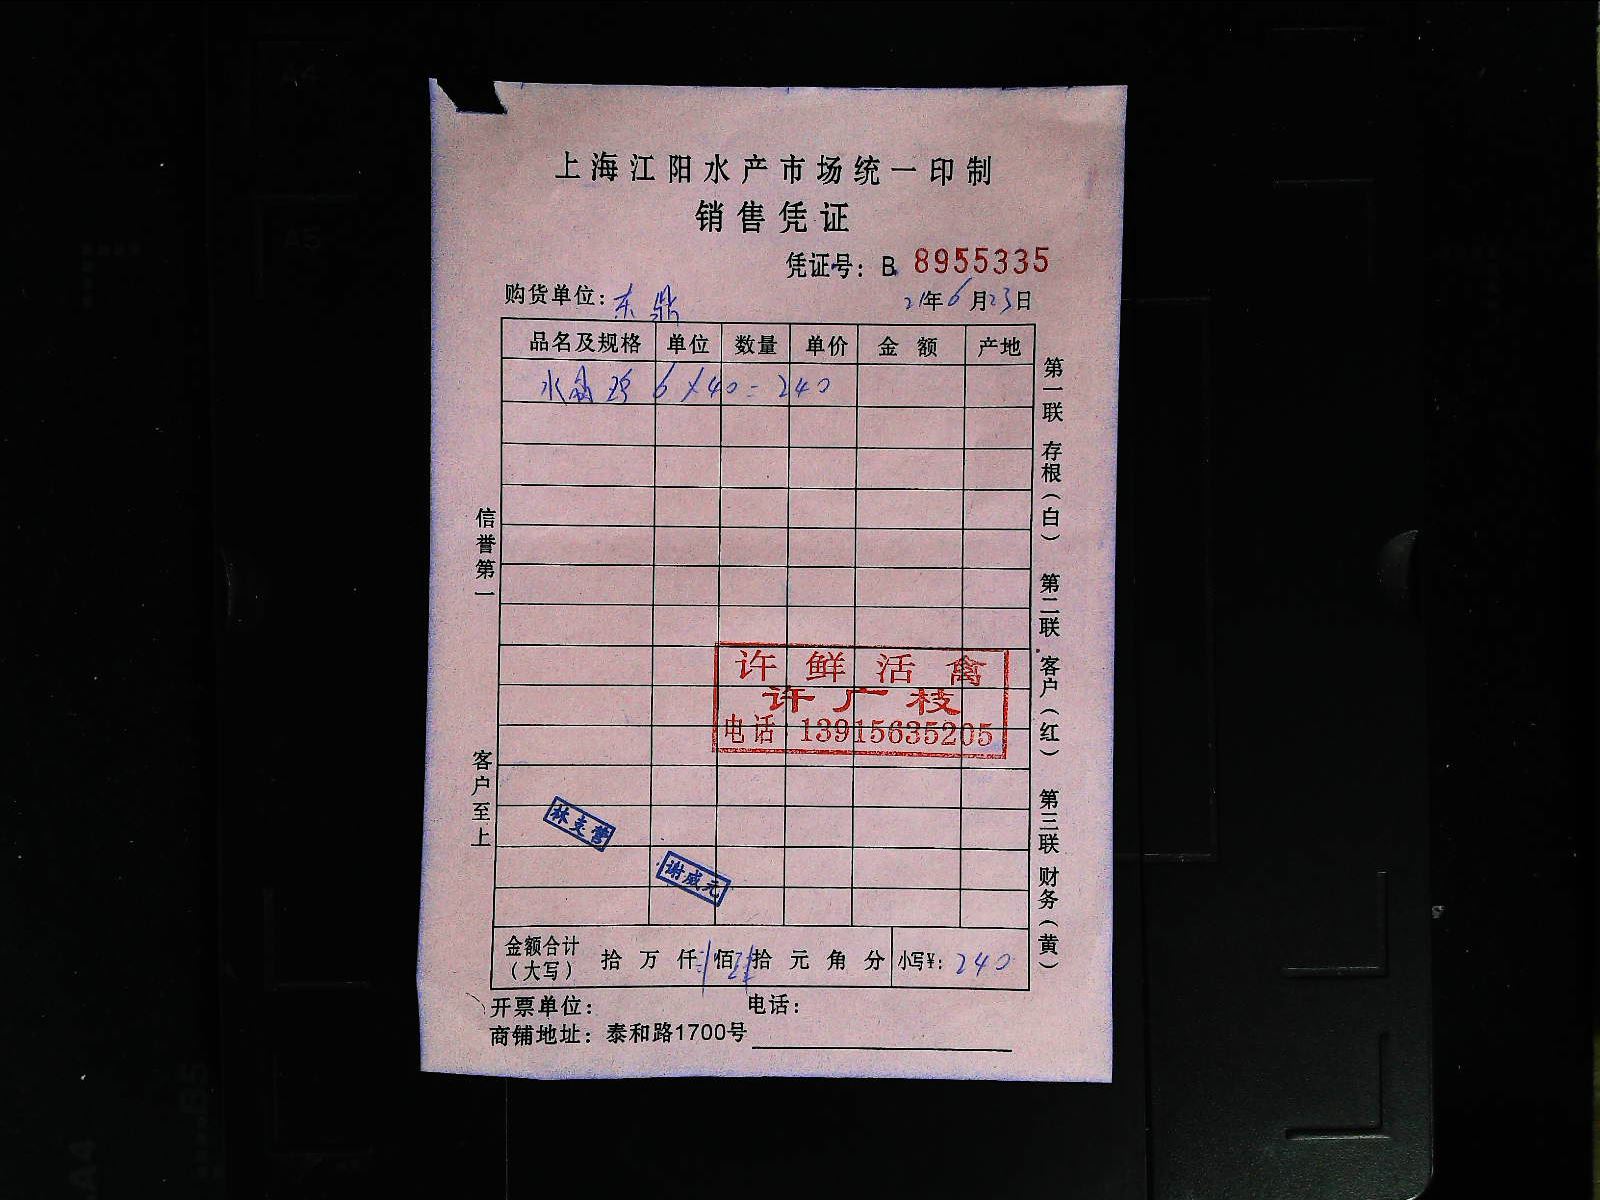 上海江阳水产市场统一印制
销售凭证
凭证号：B 8955335
购货单位：东鼎 21年6月23日
品名及规格 单位 数量 单价 金额 产地
水 鸡 6×40=240
许鲜活禽
许广枝
电话 13915635205
林支营
谢成元
金额合计（大写） 拾 万 仟 佰 拾 元 角 分 小写¥：240
开票单位： 电话：
商铺地址：泰和路1700号
信誉第一
客户至上
第一联 存根（白） 第二联 客户（红） 第三联 财务（黄）
A4
A5
B5
A4